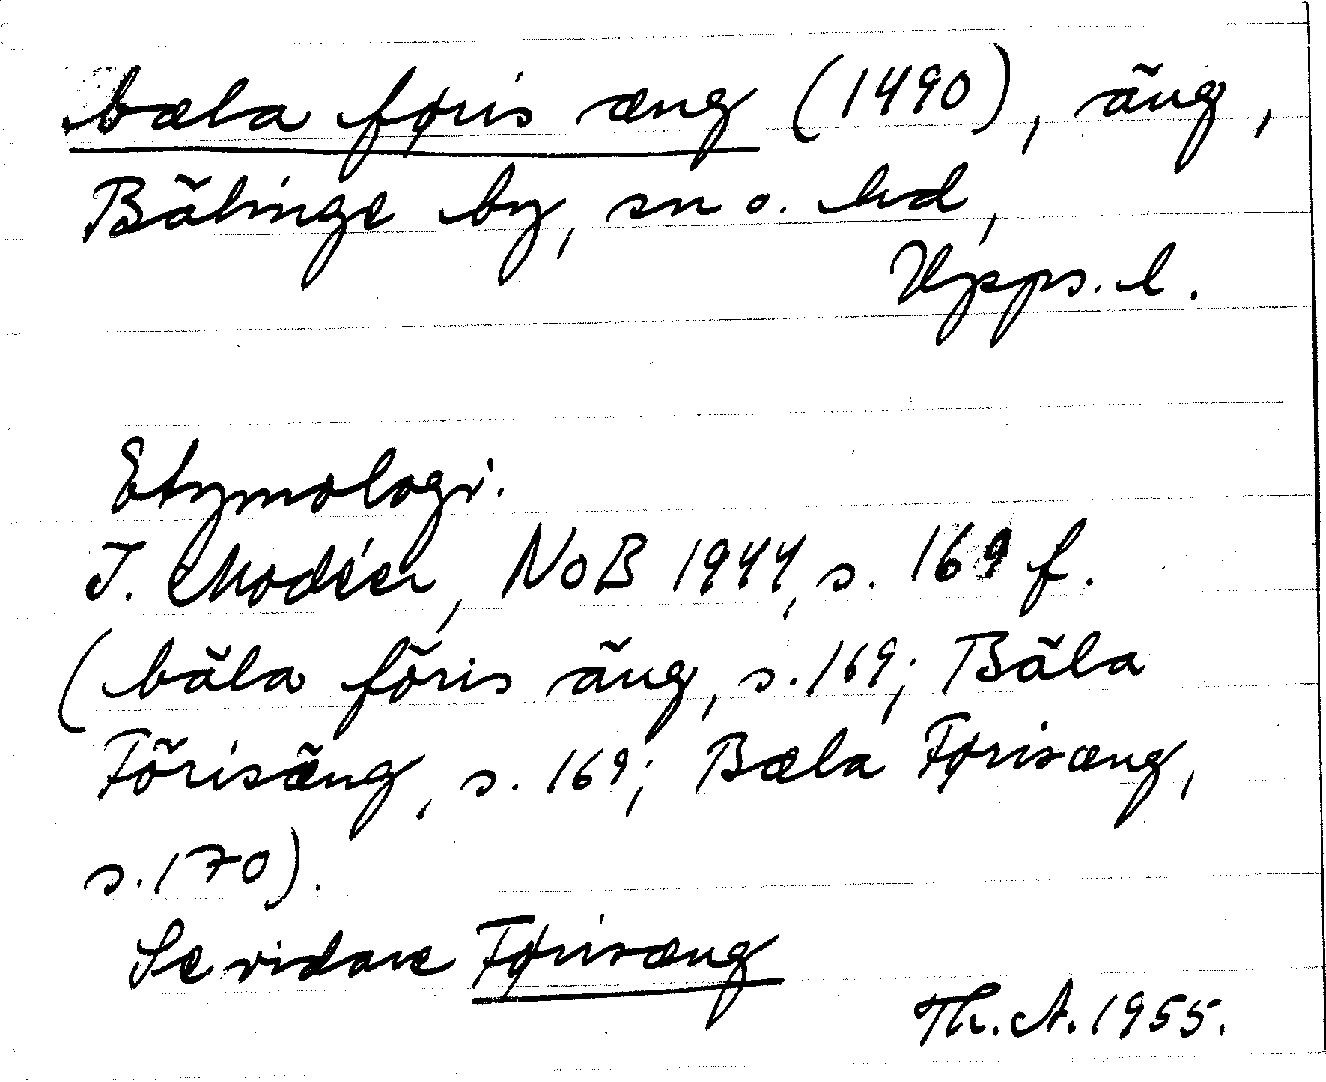 bæla føris æng (1490), äng,
Bälinge by, sn o. hd,
Upps. l.
Etymologi.
I. Modéer, NoB 1944, s. 169 f.
(bäla föris äng, s. 169; Bäla
Förisäng, s. 169; Bæla Førisæng,
s. 170).
Se vidare Førisæng
Th. A. 1955.